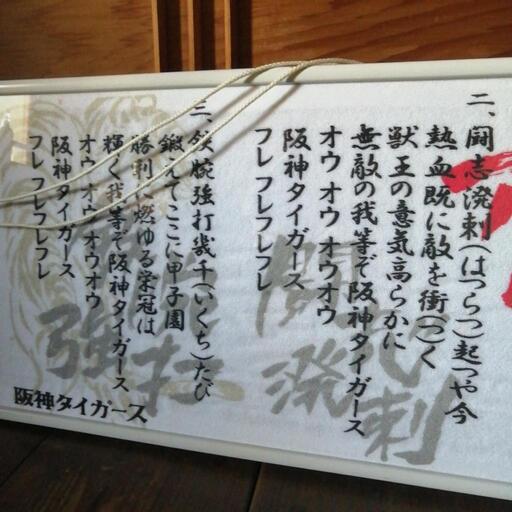 二、闘志溌剌(はつらつ)起つや今
熱血既に敵を衝(つ)く
獣王の意気高らかに
無敵の我等ぞ阪神タイガース
オウ オウ オウオウ
阪神タイガース
フレ フレフレフレ
三、鉄腕強打幾千(いくち)たび
鍛えてここに甲子園
勝利に燃ゆる栄冠は
輝く我等ぞ阪神タイガース
オウ オウ オウオウ
阪神タイガース
フレ フレフレフレ
闘志
溌剌
強打
阪神タイガース